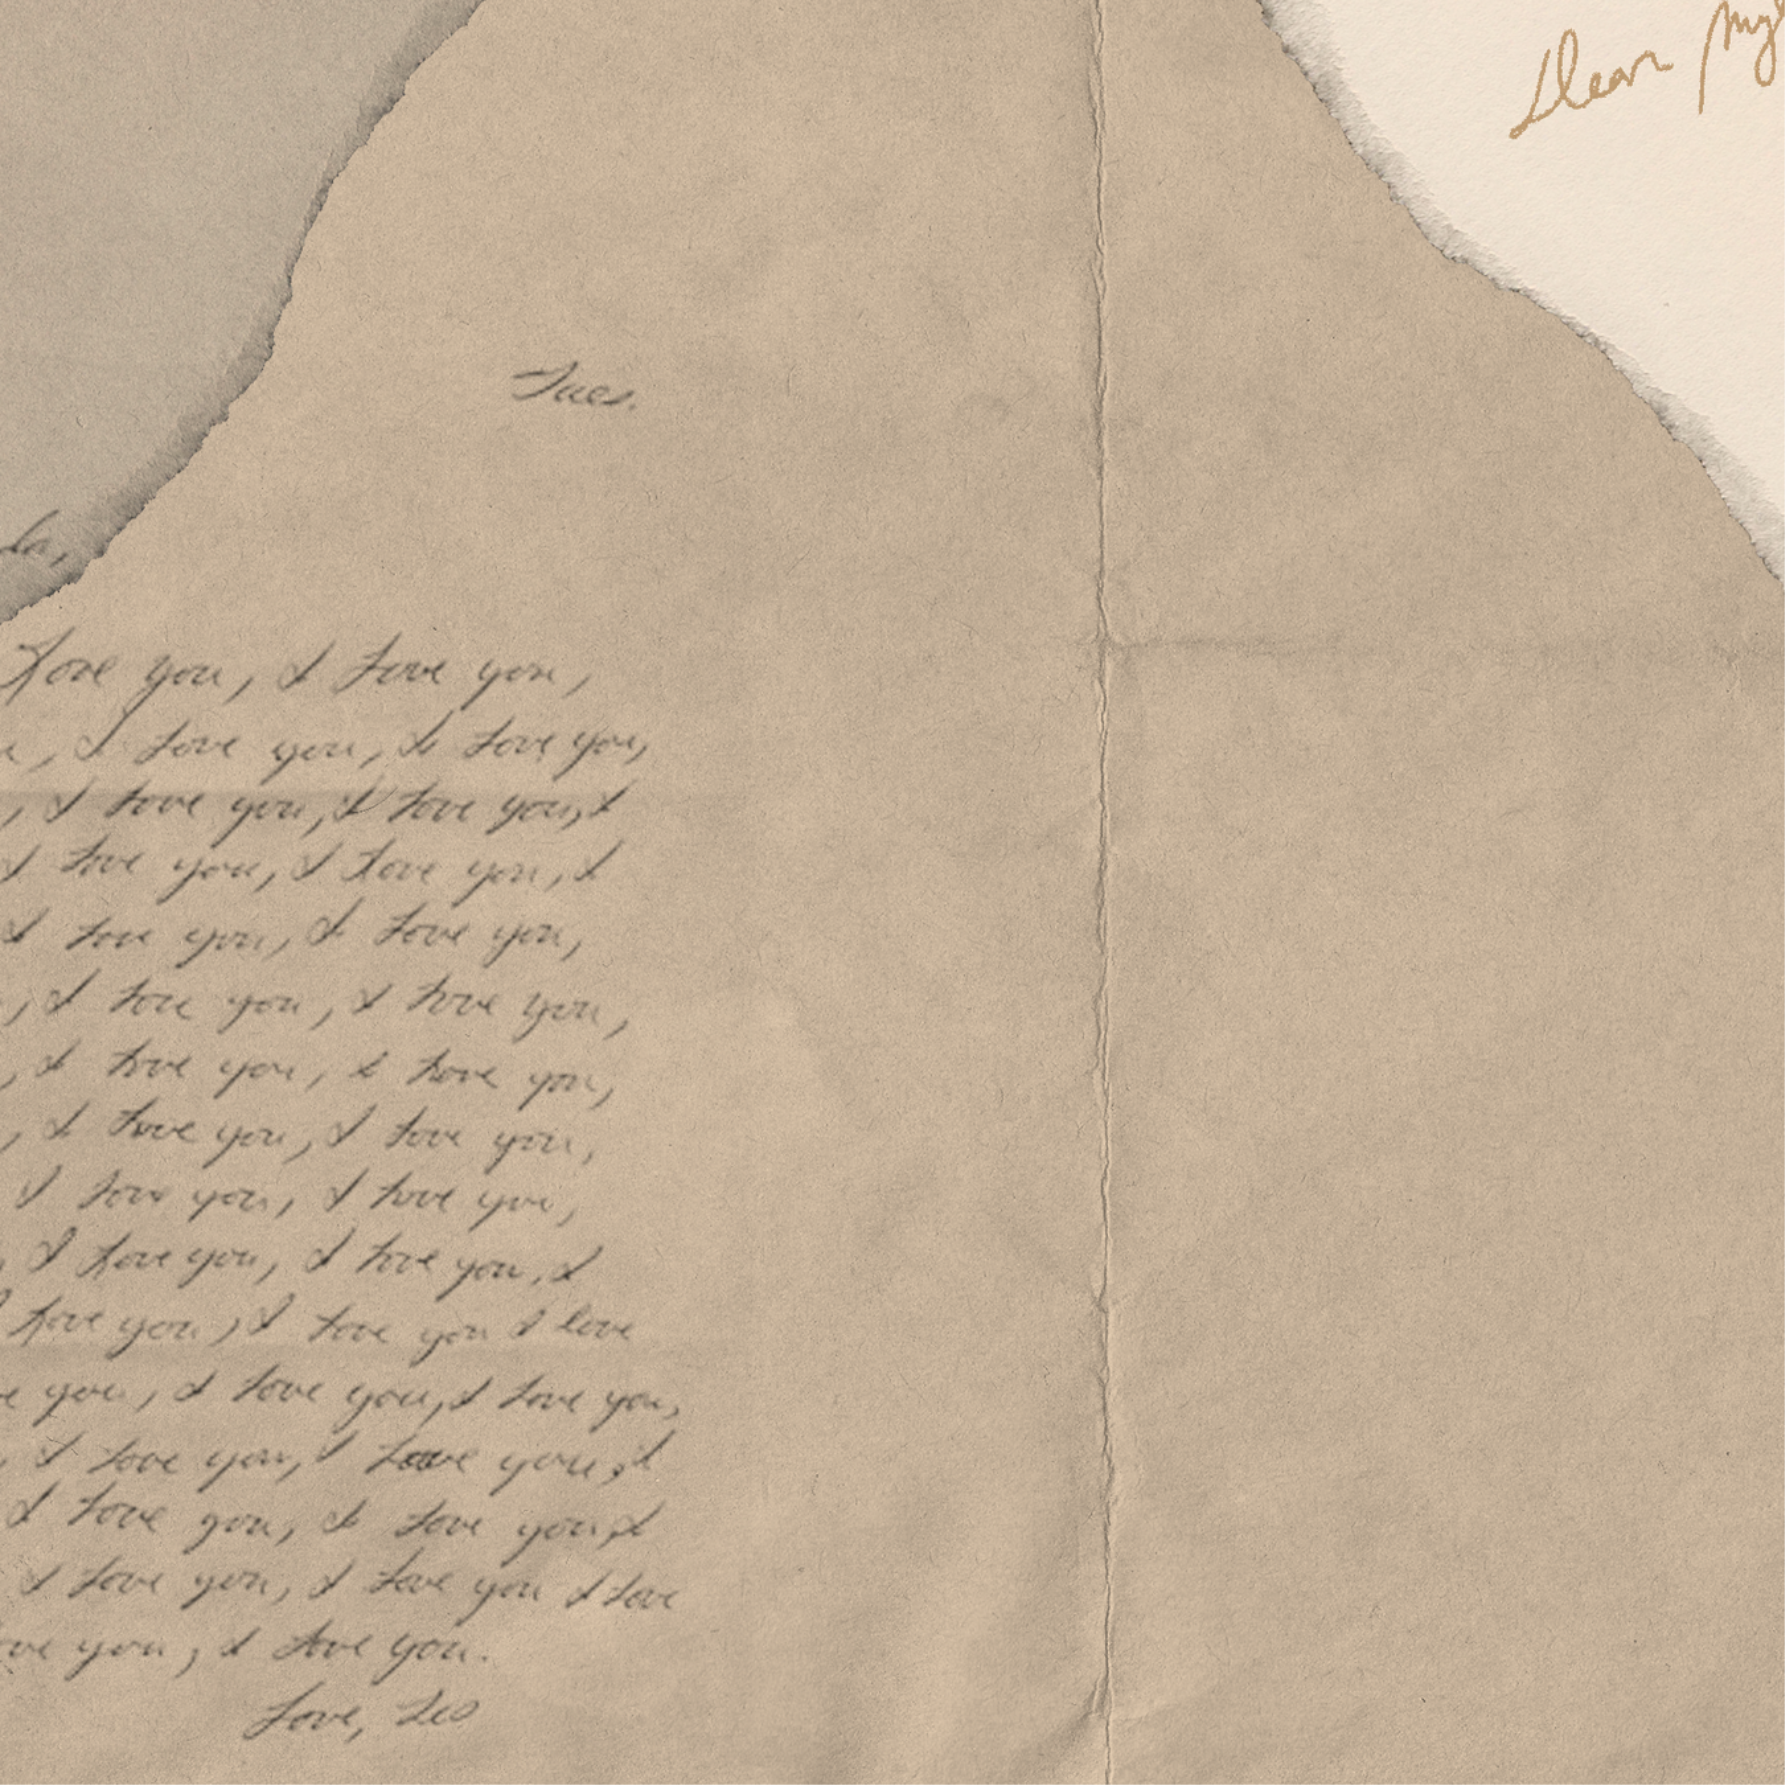 Dear My
Tues.
la,
Love you, I Love you,
u, I Love you, I Love you,
, I Love you, I Love you, I
I Love you, I Love you, I
I Love you, I Love you,
, I Love you, I Love you,
, I Love you, I Love you,
, I Love you, I Love you,
I Love you, I Love you,
, I Love you, I Love you, I
Love you, I Love you I love
e you, I Love you, I Love you,
, I Love you, I Love you, I
I Love you, I Love you, I
I Love you, I Love you I Love
ove you, I Love you.
Love, Leo